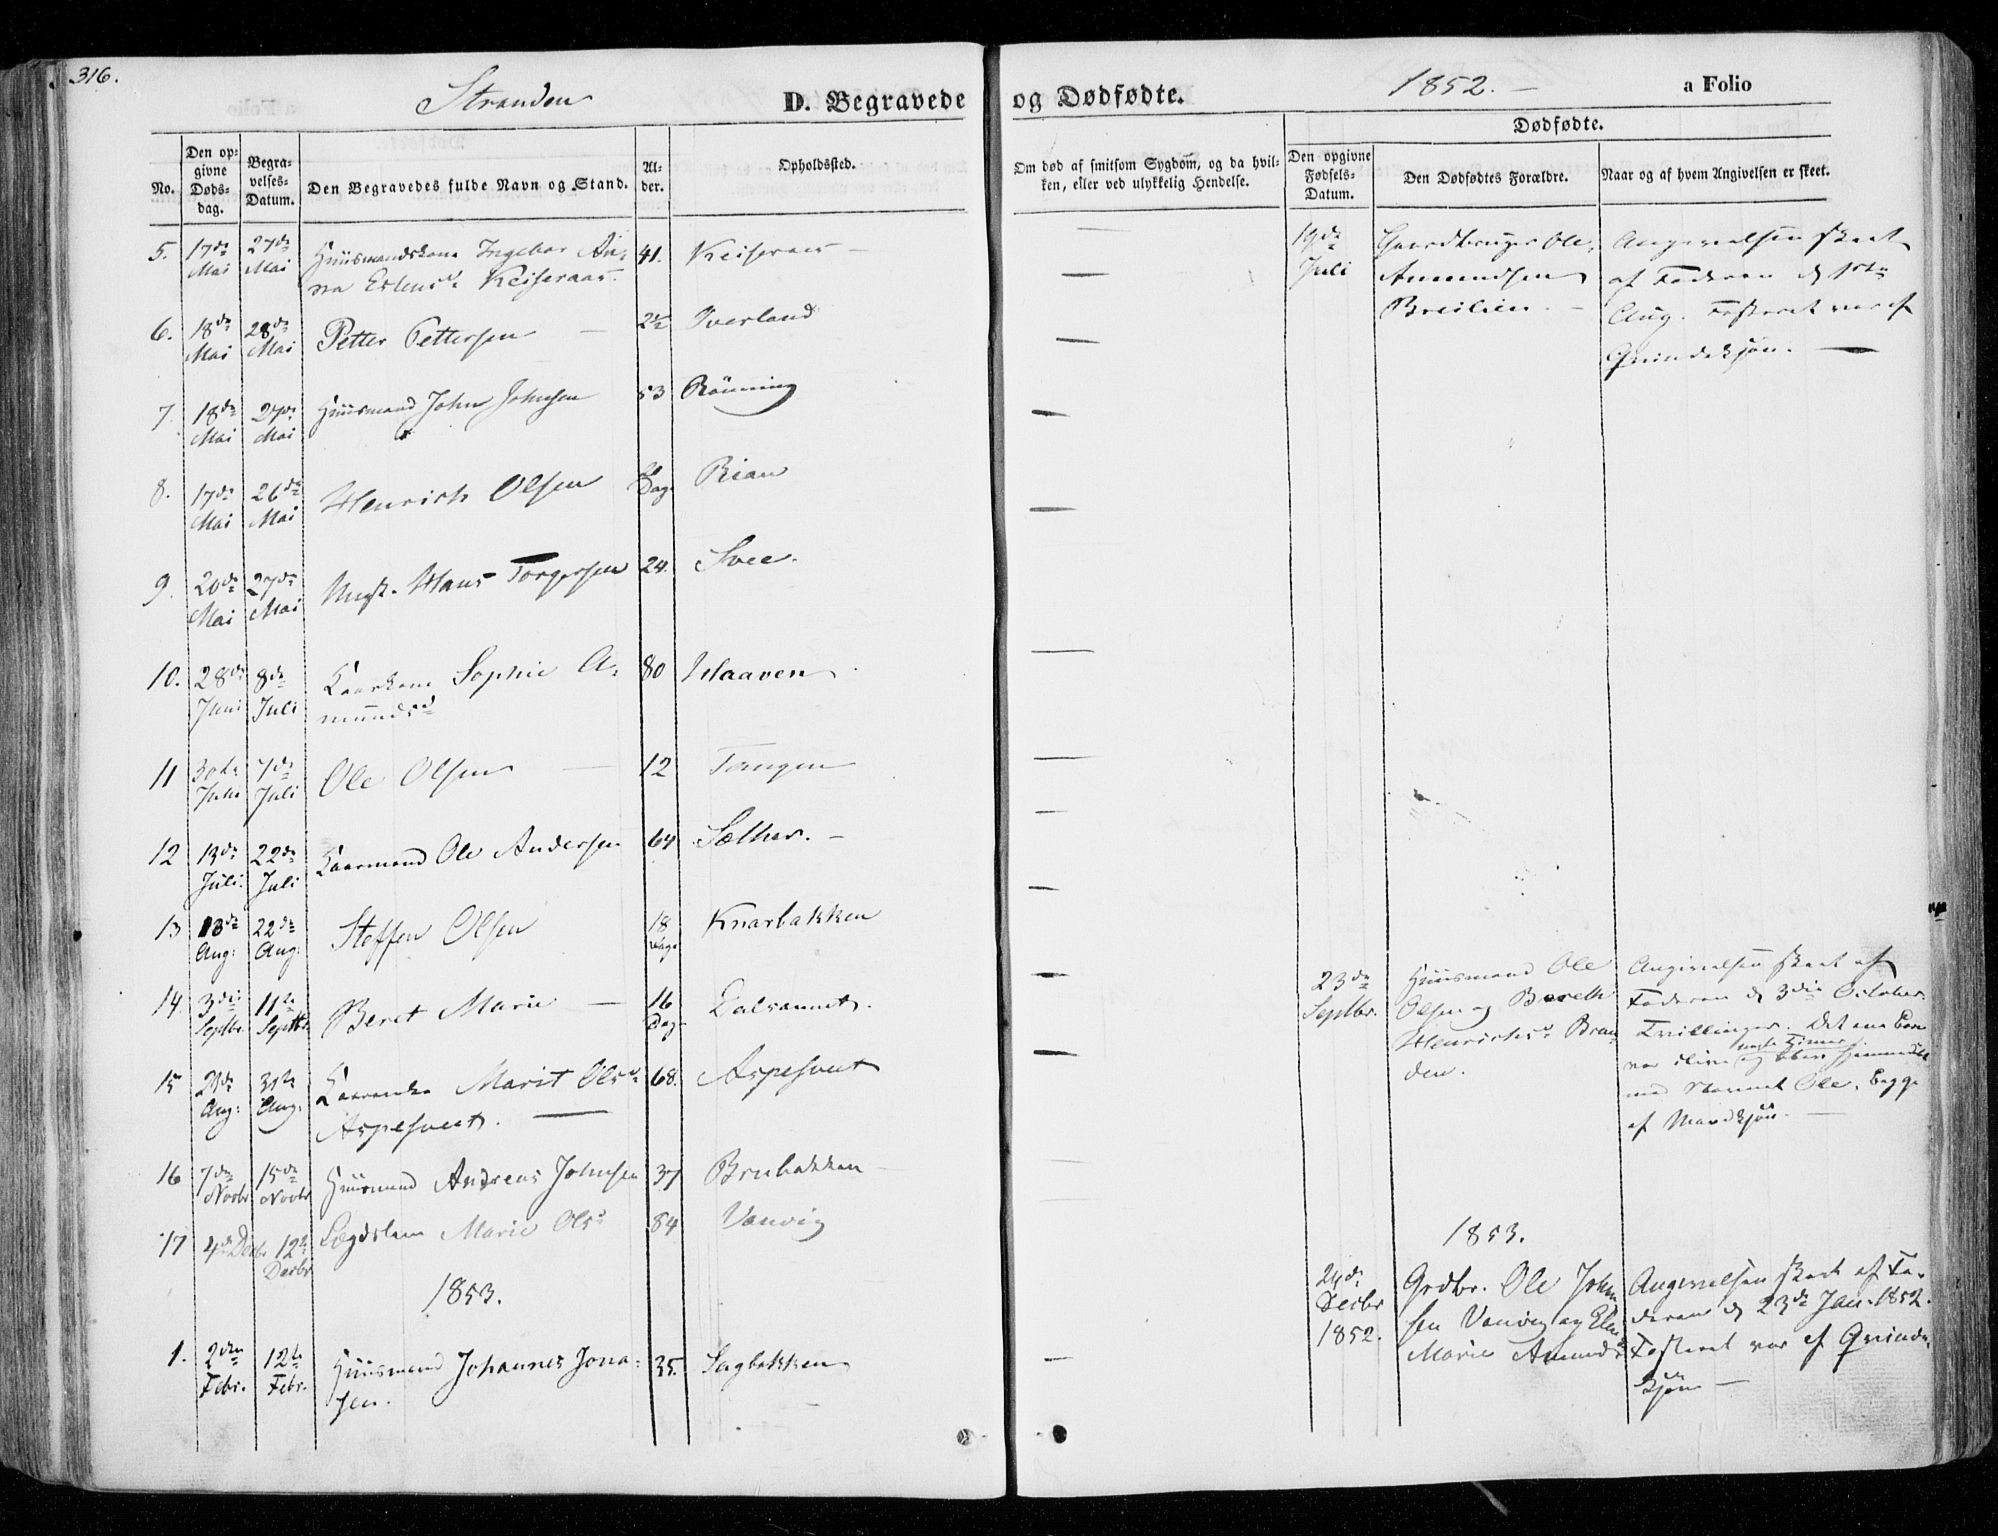 316.
Stranden
D. Begravede og Dødfødte.
1852.
a Folio
No.
Den opgivne Dødsdag.
Begravelses-Datum.
Den Begravedes fulde Navn og Stand.
Alder.
Opholdssted.
Om død af smitsom Sygdom, og da hvilken, eller ved ulykkelig Hendelse.
Dødfødte.
Den opgivne Fødsels-Datum.
Den Dødfødtes Forældre.
Naar og af hvem Angivelsen er skeet.
5. 17de Mai 27de Mai Huusmandskone Ingebor An-
na Estensd. Keiseraas 41. Keiseraas
6. 18de Mai 28de Mai Petter Pettersen 2½ Overland
7. 18de Mai 27de Mai Huusmand John Johnsen 53 Rönning
8. 17de Mai 26de Mai Henrich Olsen Dag Rian
9. 20de Mai 27de Mai Ungk. Hans Torgersen 24. Svee.
10. 28de Juni 8de Juli Kaarkone Sophie A-
mundsd 80 Haaven
11 30te Juni 7de Juli Ole Olsen 12 Tangen
12 13de Juli 22de Juli Kaarmand Ole Andersen 64 Sæther.
13 13de Aug: 22de Aug: Steffen Olsen 18 Dage Knarbakken
14. 3die Septbr. 11te Septbr. Beret Marie 16 Dage Dalsaunet.
15 23de Aug: 31te Aug. Kaarenke Marit Olsd.
Aspesveet. 68. Aspesveet
16 7de Novbr 15de Novbr Huusmand Andreas Johnsen 37 Brubakken
17 4de Decbr 12te Decbr Lægdslem Marie Olsd 84 Vanvig
1853.
1. 2den Febr. 12te Febr. Huusmand Johannes Jona-
sen. 35. Sagbakken
19de Juli
Gaardbruger Ole
Amundsen
Breilien.
Angivelsen skeet
af Faderen d 1ste
Aug. Fosteret var af
Qvindekjøn.
23de Septbr.
Huusmand Ole
Olsen og Bereth
Henrichsd. Bran-
den.
Angivelsen skeet af
Faderen d 3die October.
Tvillinger. Det ene Barn
nogle Timer
var ilive og blev hjemmedøbt
med Navnet Ole. Begge
af Mandkjøn.
1853.
24de Decbr 1852.
Grdbr. Ole John-
sen Vanvig og Elen
Marie Amundsd
Angivelsen skeet af Fa-
deren d 23de Jan. 1852.
Fosteret var af Qvinde-
kjøn